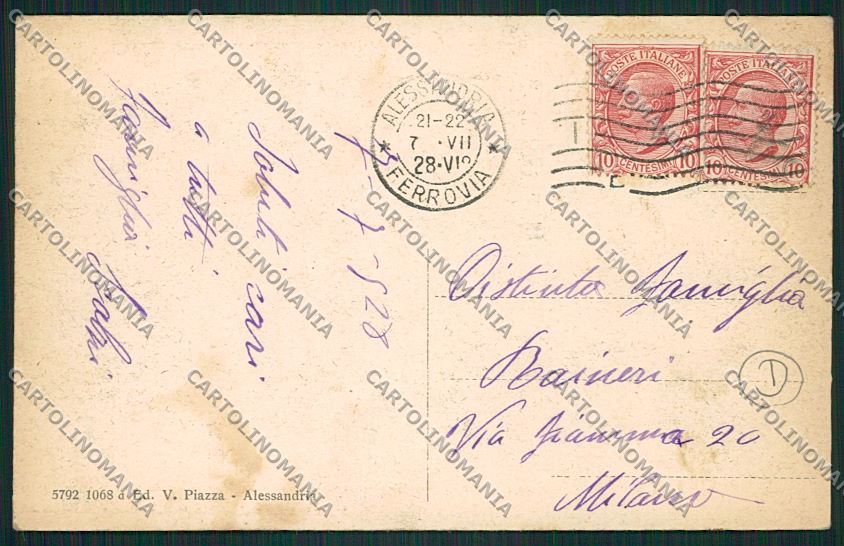 7-7-928
Saluti cari
a tutti
Famiglia
ALESSANDRIA
21-22
7 · VII
28·VI
FERROVIA
POSTE ITALIANE
10 CENTESIMI 10
POSTE ITALIANE
10 CENTESIMI 10
Distinta Famiglia
Raineri
Via 20
Milano
1
5792 1068 d Ed. V. Piazza - Alessandria
CARTOLINOMANIA